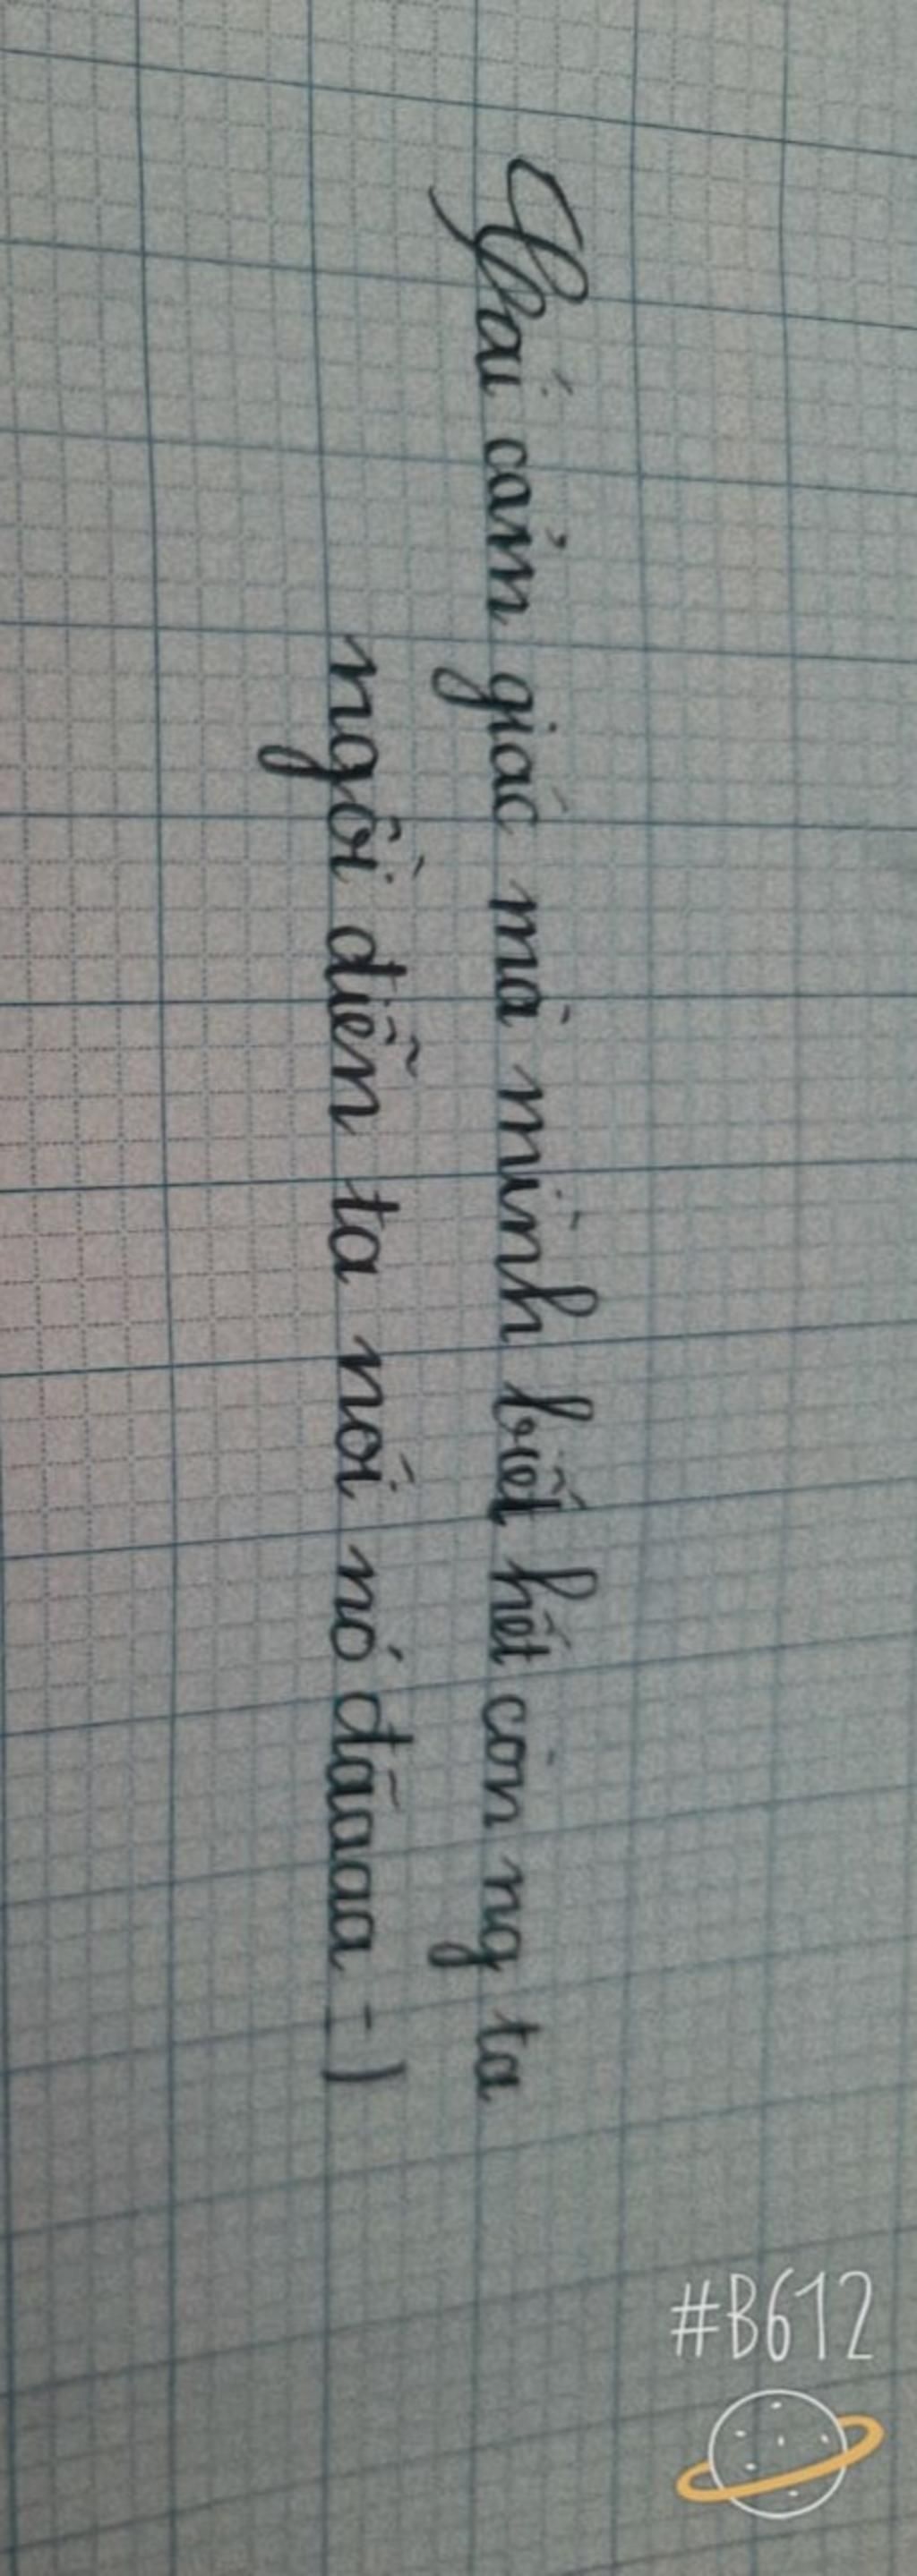 Cái cảm giác mà mình biết hết còn ng ta
ngồi diễn ta nói nó đãaaa =)
#B612